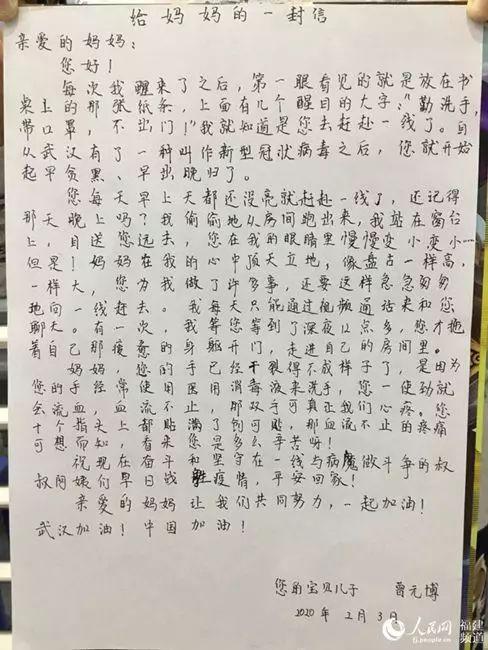 给妈妈的一封信
亲爱的妈妈：
您好！
每次我醒来了之后，第一眼看见的就是放在书
桌上的那张纸条，上面有几个醒目的大字：“勤洗手，
带口罩，不出门！”我就知道是您去赶赴一线了。自
从武汉有了一种叫作新型冠状病毒之后，您就开始
起早贪黑、早出晚归了。
您每天早上天都还没亮就赶赴一线了，还记得
那天晚上吗？我偷偷地从房间跑出来，我站在窗台
上，目送您远去，您在我的眼睛里慢慢变小变小…
但是！妈妈在我的心中顶天立地，像盘古一样高，
一样大，您为我做了许多事，还要这样急急匆匆
地向一线赶去。我每天只能通过视频通话来和您
聊天。有一次，我等您等到了深夜12点多，您才拖
着自己那疲惫的身躯开门，走进自己的房间里。
妈妈，您的手已经干裂得不成样子了，是因为
您的手经常使用医用消毒液来洗手，您一使劲就
会流血，血流不止，那双手可真让我们心疼。您
十个指头上都贴满了创可贴，那血流不止的疼痛
可想而知，看来您是多么辛苦呀！
祝现在奋斗和坚守在一线与病魔做斗争的叔
叔阿姨们早日战胜疫情，平安回家！
亲爱的妈妈让我们共同努力，一起加油！
武汉加油！中国加油！
您的宝贝儿子 曾元博
2020年2月3日
人民网 福建频道